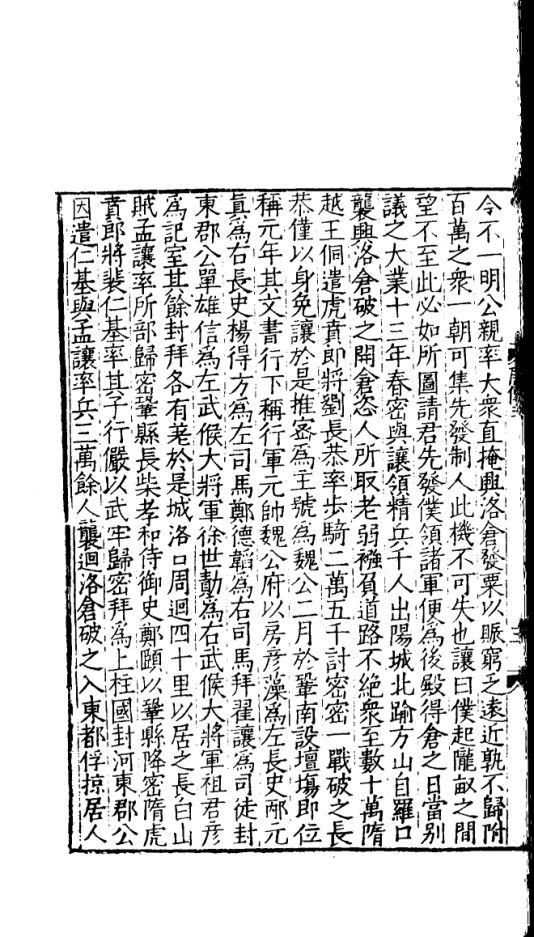 令不一明公親率大衆直掩興洛倉發粟以賑窮乏遠近孰不歸附
百萬之衆一朝可集先發制人此機不可失也讓曰僕起隴畝之間
望不至此必如所圖請君先發僕領諸軍便爲後殿得倉之日當別
議之大業十三年春密與讓領精兵千人出陽城北踰方山自羅口
襲興洛倉破之開倉恣人所取老弱襁負道路不絕衆至數十萬隋
越王侗遣虎賁郎將劉長恭率步騎二萬五千討密密一戰破之長
恭僅以身免讓於是推密爲主號爲魏公二月於鞏南設壇塲即位
稱元年其文書行下稱行軍元帥魏公府以房彦藻爲左長史邴元
眞爲右長史楊得方爲左司馬鄭德韜爲右司馬拜翟讓爲司徒封
東郡公單雄信爲左武候大將軍徐世勣爲右武候大將軍祖君彦
爲記室其餘封拜各有差於是城洛口周迴四十里以居之長白山
賊孟讓率所部歸密鞏縣長柴孝和侍御史鄭頤以鞏縣降密隋虎
賁郎將裴仁基率其子行儼以武牢歸密拜爲上柱國封河東郡公
因遣仁基與孟讓率兵三萬餘人襲迴洛倉破之入東都俘掠居人